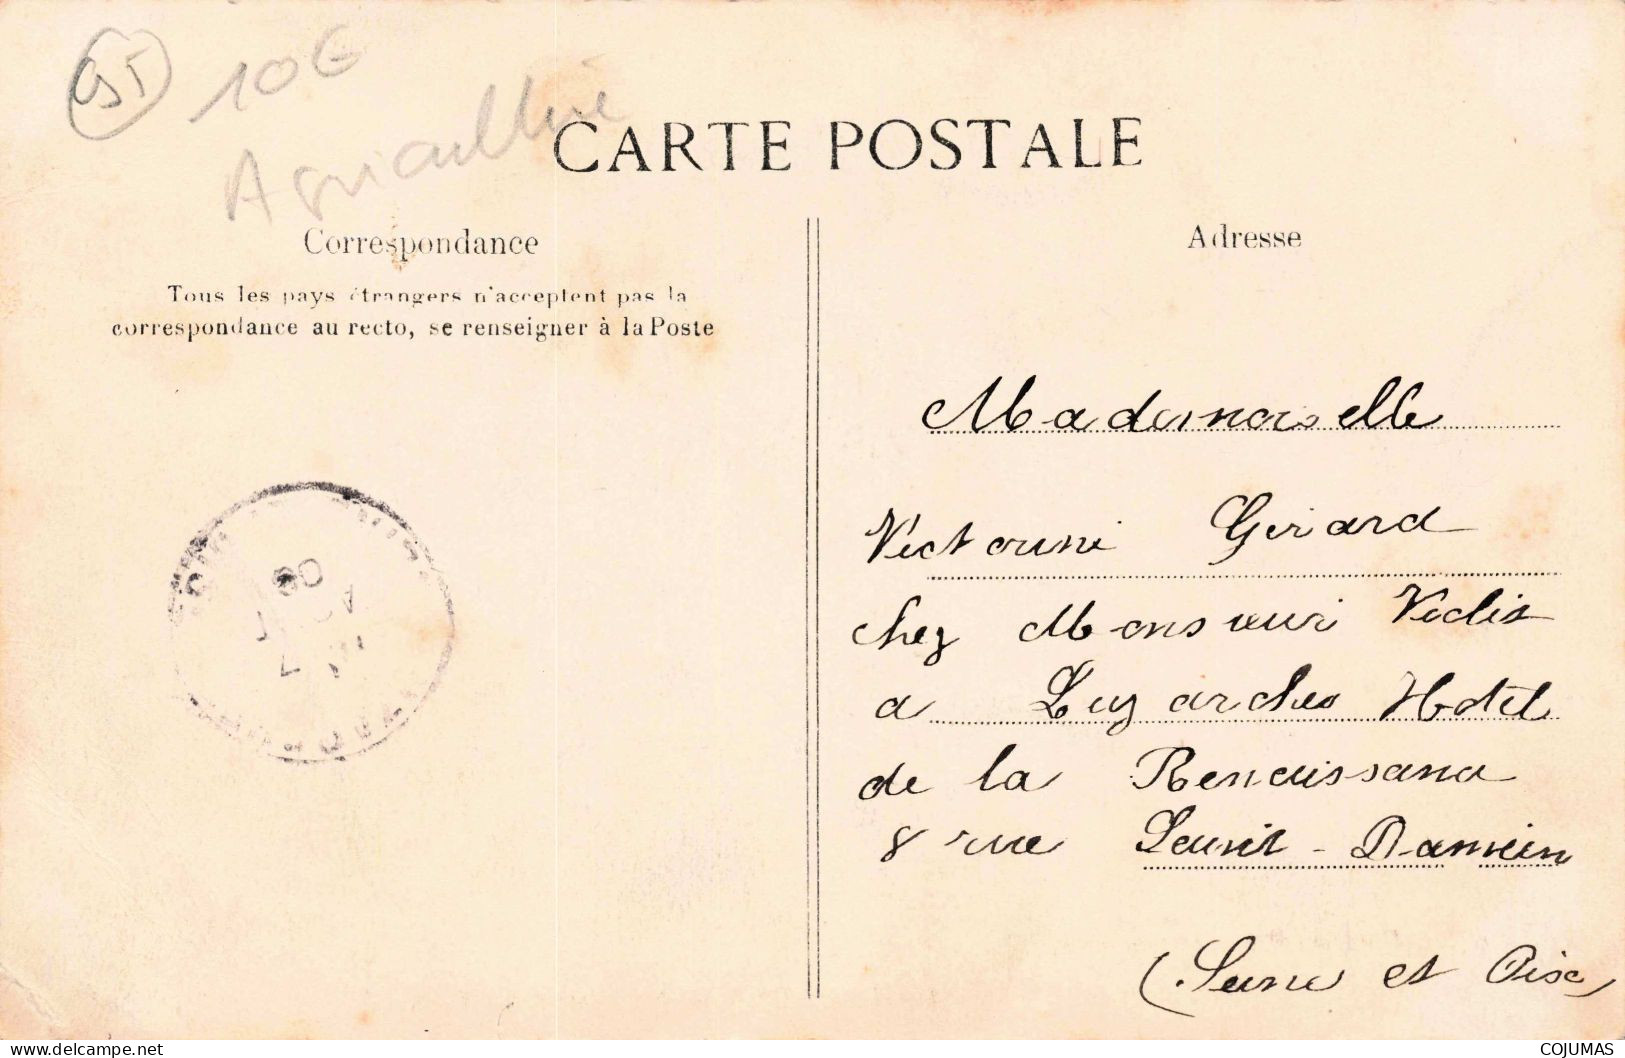 95
10€
Agriculture
CARTE POSTALE
Correspondance
Tous les pays étrangers n'acceptent pas la
correspondance au recto, se renseigner à la Poste
Adresse
Mademoiselle
Victorine Girard
chez Monsieur
a Luzarches Hotel
de la Renaissance
8 rue Saint-Damien
(Seine et Oise)
www.delcampe.net
COJUMAS